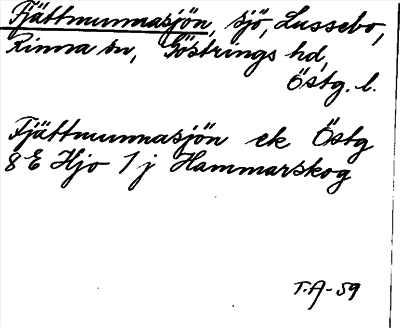 Fjättmunnasjön, sjö, Lussebo,
Rinna sn, Göstrings hd,
Östg. l.
Fjättmunnasjön ek Östg
8E Hjo 1j Hammarskog
T.A-59